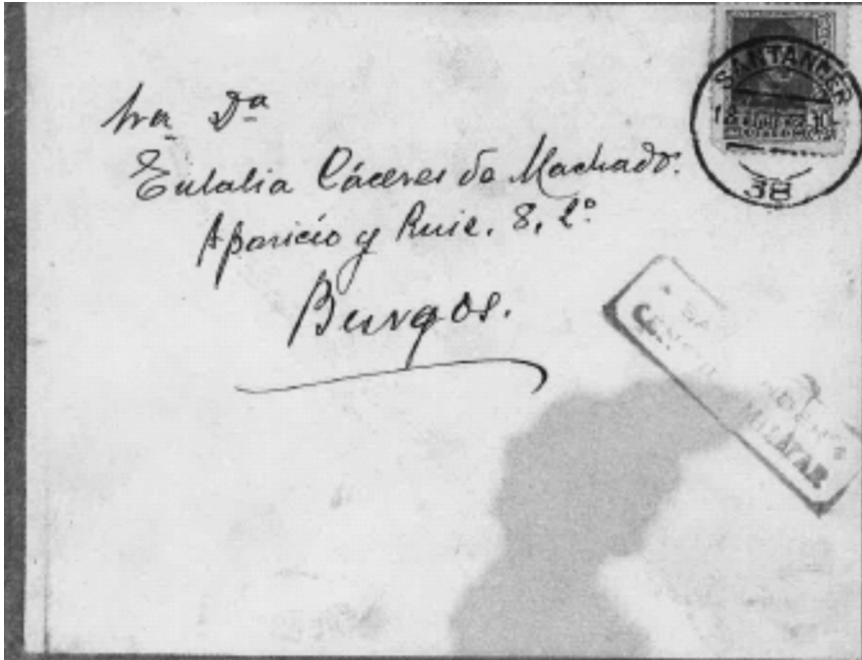 Sra Dª
Eulalia Cáceres de Machado.
Aparicio y Ruiz, 8, 2º
Burgos.
SANTANDER
38
MILITAR